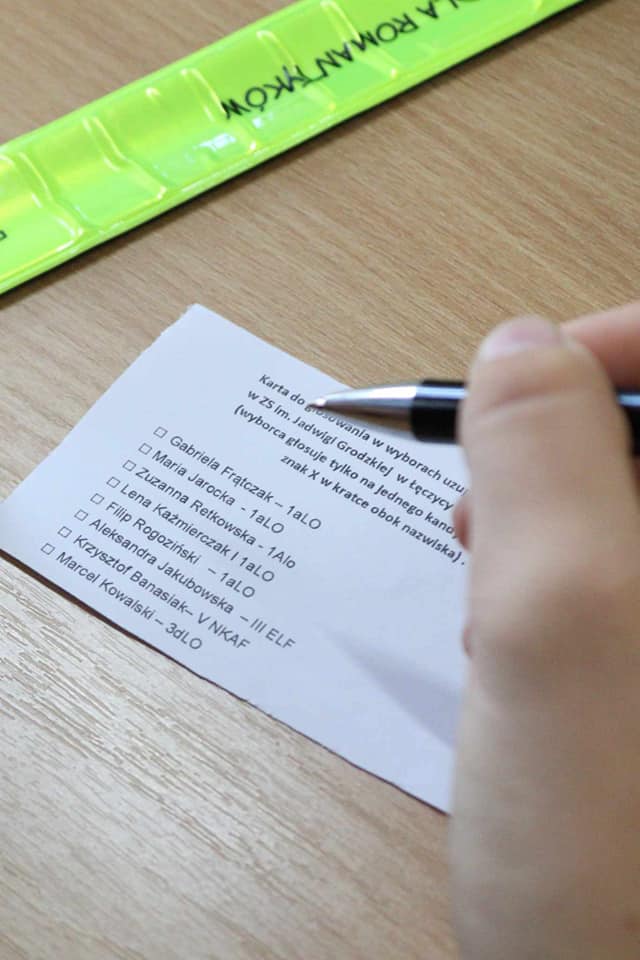 DLA ROMANTYKÓW
Karta do głosowania w wyborach
w ZS im. Jadwigi Grodzkiej w Łęczycy
(wyborca głosuje tylko na jednego
znak X w kratce obok nazwiska) .
☐ Gabriela Frątczak – 1aLO
☐ Maria Jarocka - 1aLO
☐ Zuzanna Retkowska - 1Alo
☐ Lena Kaźmierczak I 1aLO
☐ Filip Rogoziński – 1aLO
☐ Aleksandra Jakubowska – III ELF
☐ Krzysztof Banasiak– V NKAF
☐ Marcel Kowalski – 3dLO